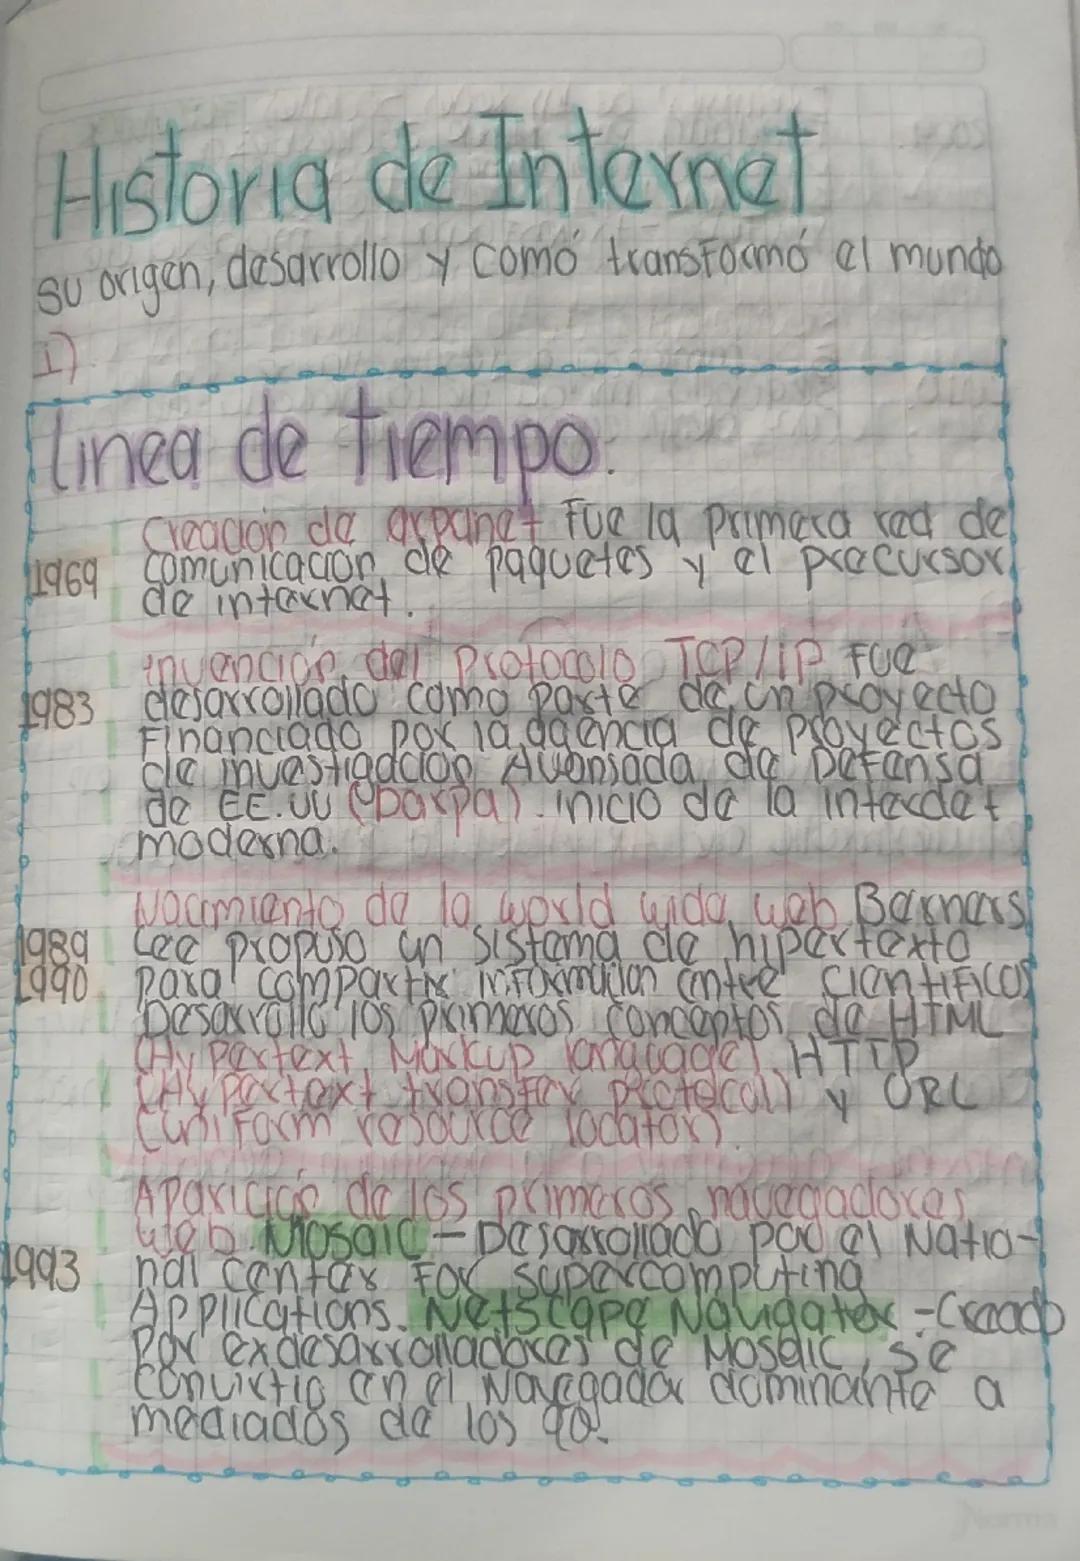 Historia de Internet
su origen, desarrollo y comó transformó el mundo
1)
linea de tiempo.
Creación de arpanet fue la primera red de
1969 comunicación de paquetes y el precursor
de internet.
invención del protocolo TCP/iP fue
1983 desarrollado como parte de un proyecto
financiado por la agencia de proyectos
de investigación Avansada de Defensa
de EE.UU (Darpa). inicio de la interdet
moderna.
Nacimiento de la world wide web Berners
1989 Lee propuso un sistema de hipertexto
1990 para compartir información entre cientificos
Desarrollo los primeros conceptos de HTML
(Hypertext Markup language), HTTP
(Hypertext transfer protocol) y URL
(uniform resource locator).
Aparición de los primeros navegadores
web. Mosaic - Desarrollado por el Natio-
1993 nal center For supercomputing
Applications. Netscape Navigater - Creado
Por exdesarrolladores de Mosaic, se
convirtio en el Navegador dominante a
mediados de los 90.
Norma